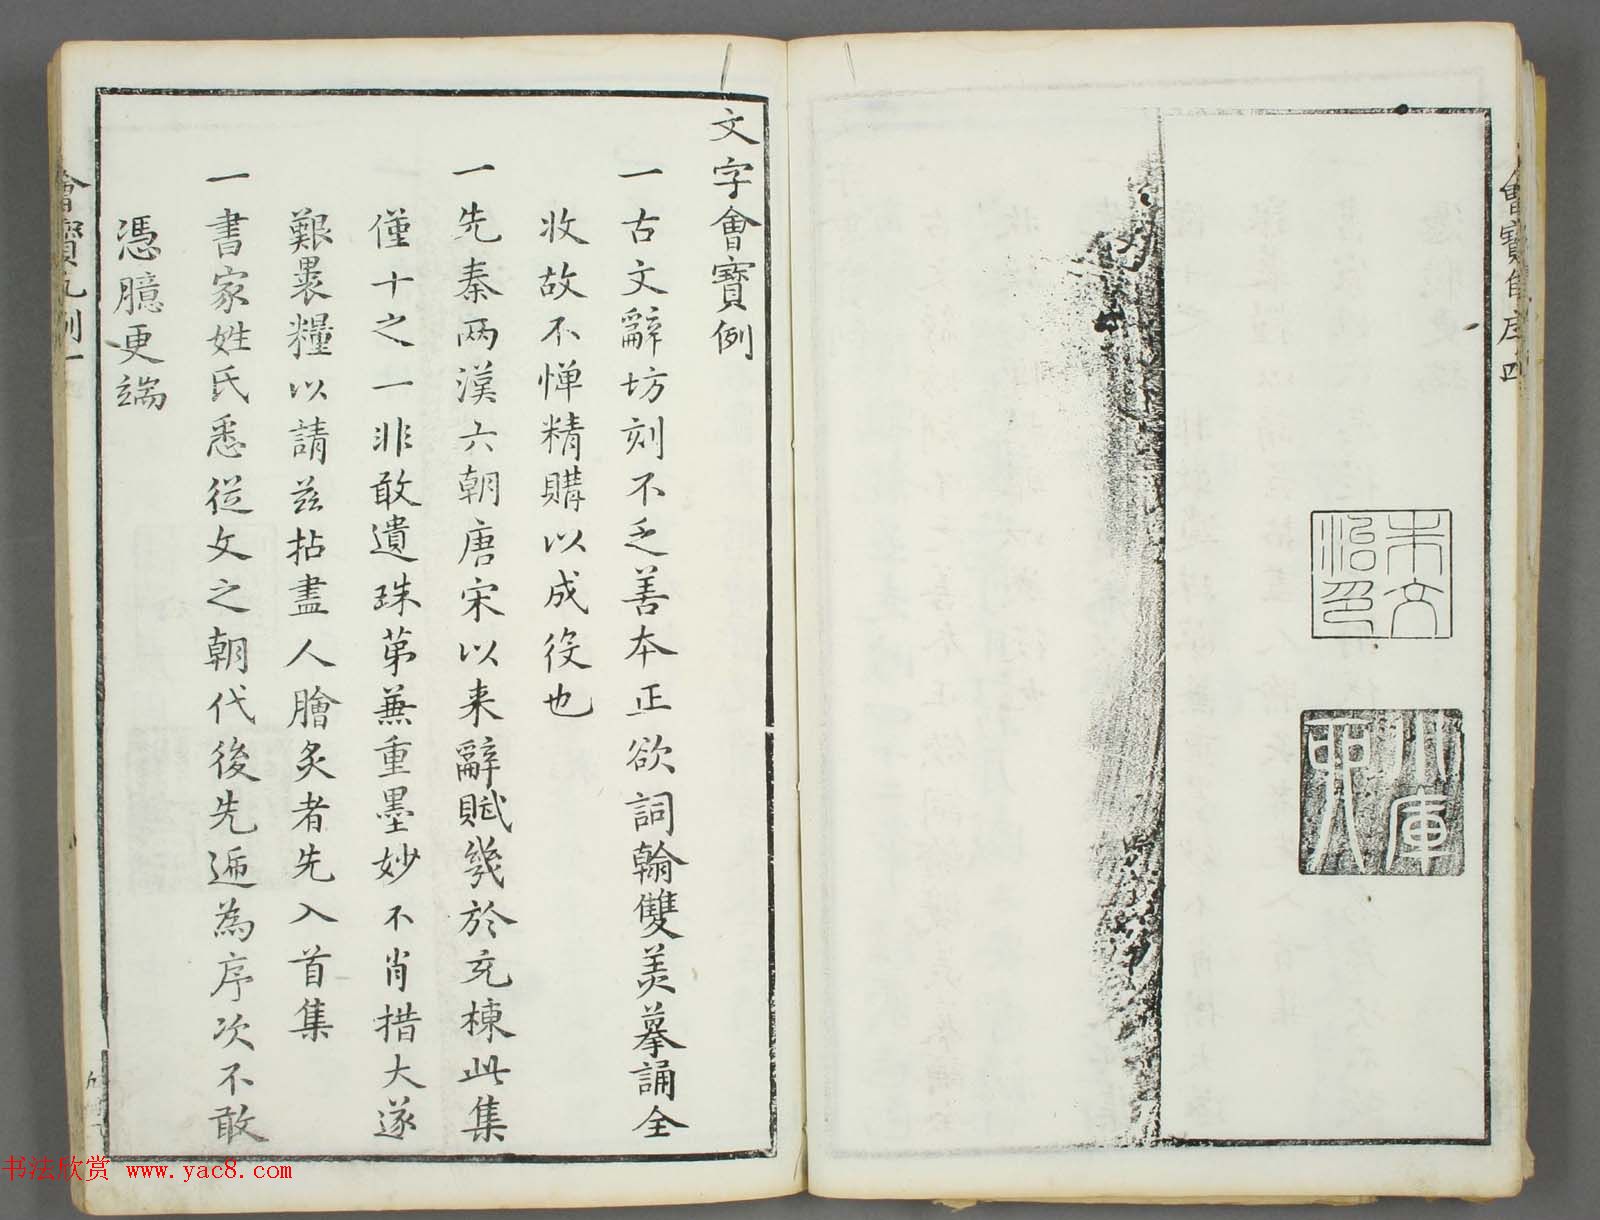 朱文
治印
文字會寶例
一古文辭坊刻不乏善本正欲詞翰雙美摹誦全
收故不憚精購以成役也
一先秦兩漢六朝唐宋以来辭賦幾於充棟此集
僅十之一非敢遺珠苐蕪重墨妙不肖措大遂
艱褁糧以請茲拈盡人膾炙者先入首集
一書家姓氏悉從文之朝代後先遞為序次不敢
憑臆更端
书法欣赏 www.yac8.com